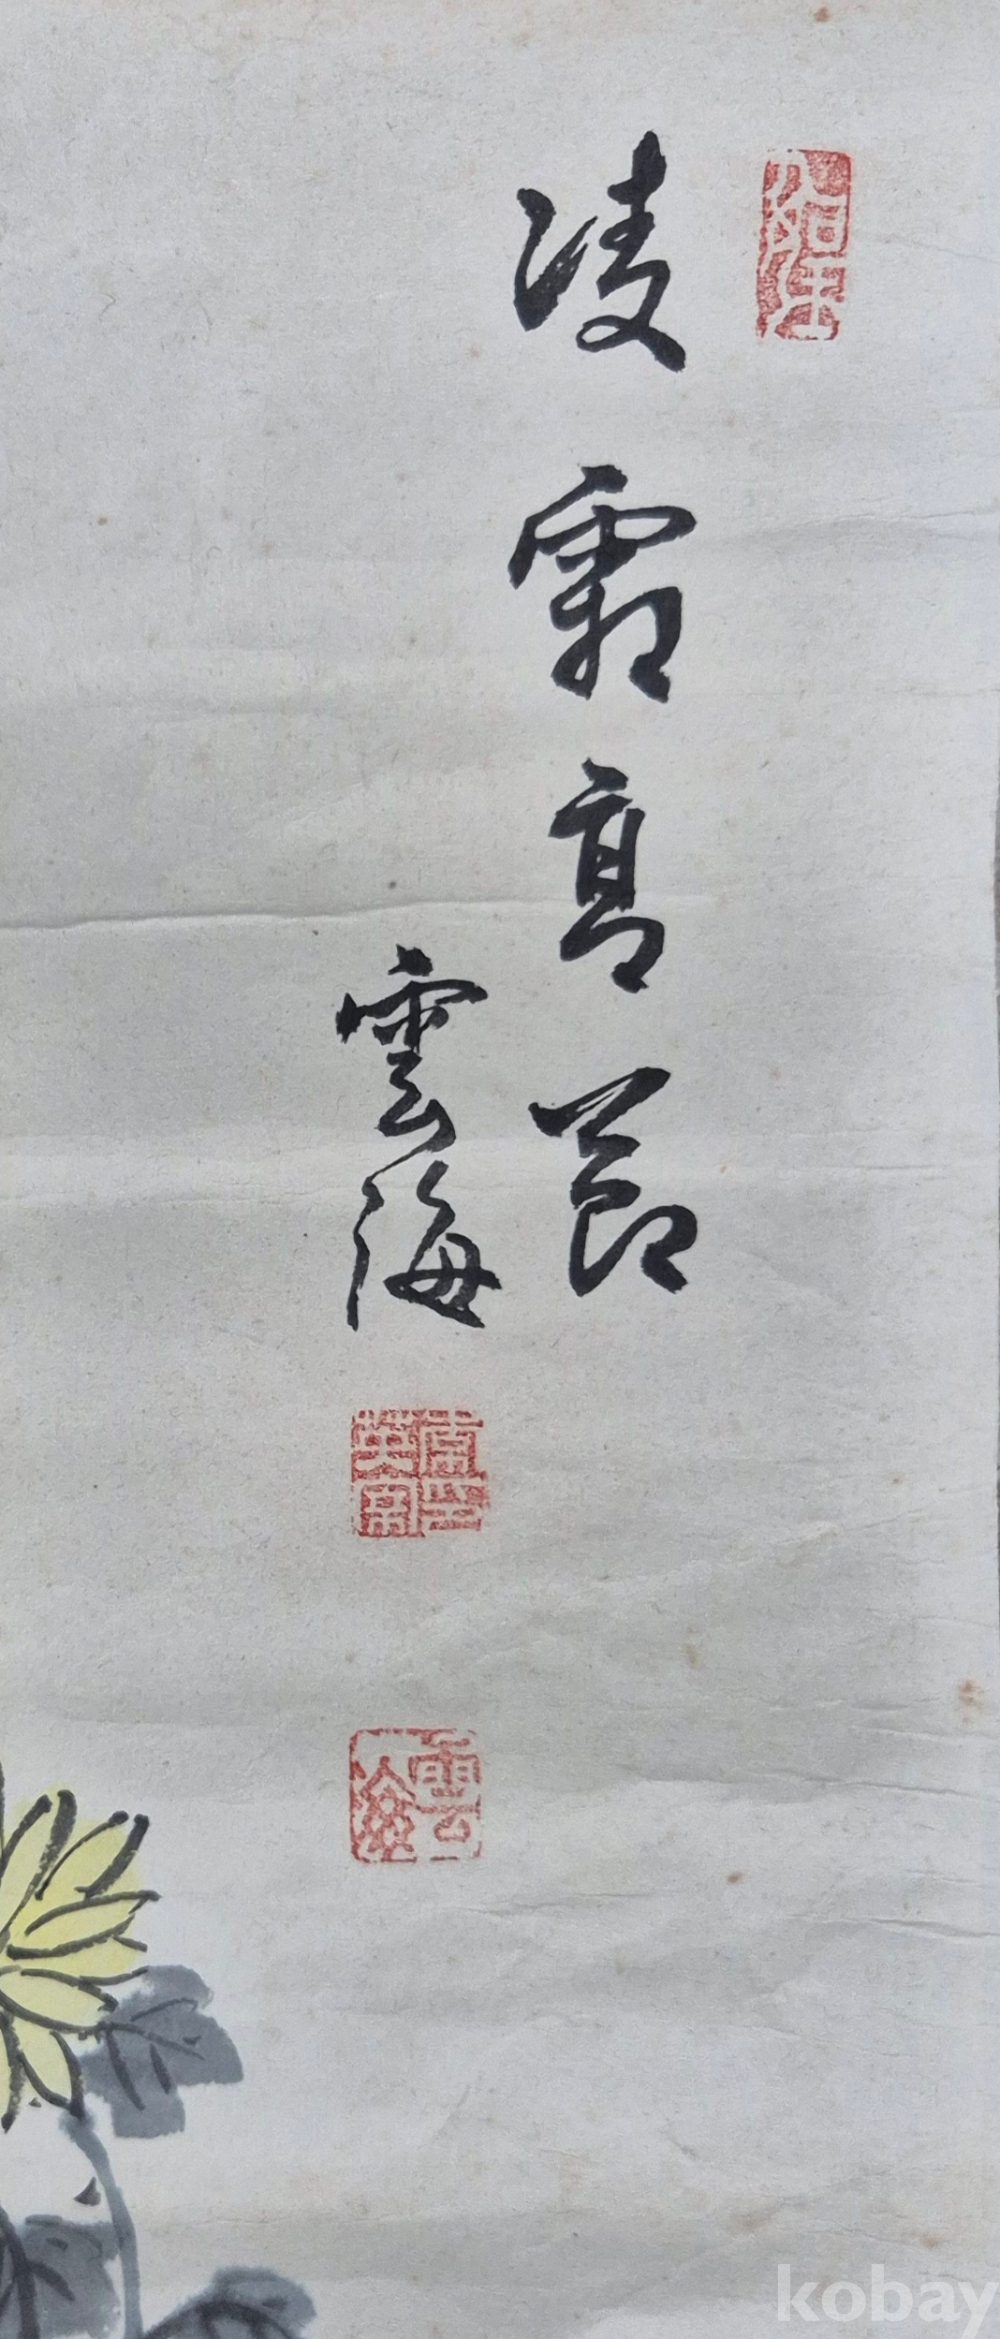 凌霜高節
雲海
雲海
kobay